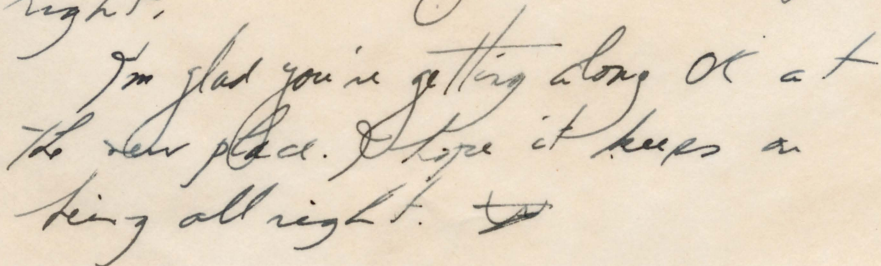 right.
I'm glad you're getting along OK at
the new place. I hope it keeps on
being all right.